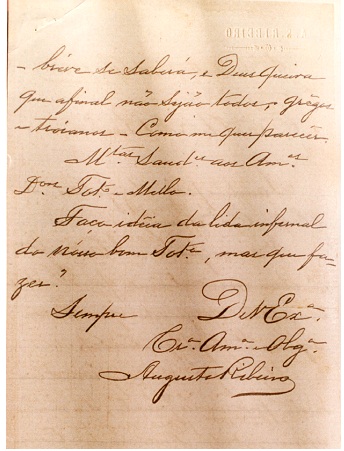 - breve se saberá, e Deus queira
que afinal não sejão todos, grêgos
- troianos - Como me quer parecêr.
M.tas Saud.es aos Am.os
D.ores Tot.a e Mello.
Faço idéia da lida infernal
do nósso bom Tot.a, mas que fa-
zer?
Sempre D V Ex.a
Cr.a Am.a e Obg.a
Augusto Ribeiro